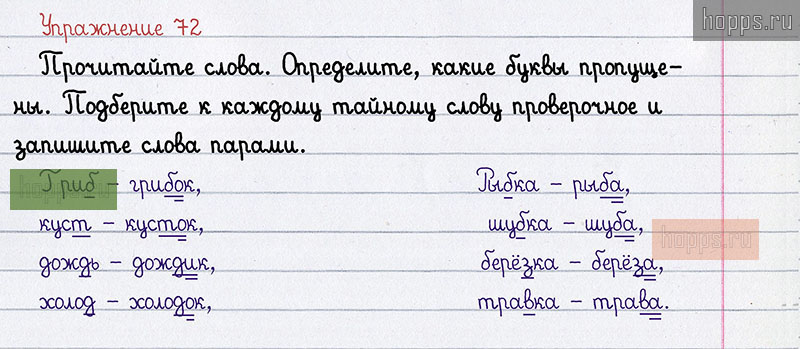 Упражнение 72
hopps.ru
Прочитайте слова. Определите, какие буквы пропуще-
ны. Подберите к каждому тайному слову проверочное и
запишите слова парами.
Гриб - грибок,
куст - кусток,
дождь - дождик,
холод - холодок,
Рыбка - рыба,
шубка - шуба,
берёзка - берёза,
травка - трава.
hopps.ru
hopps.ru